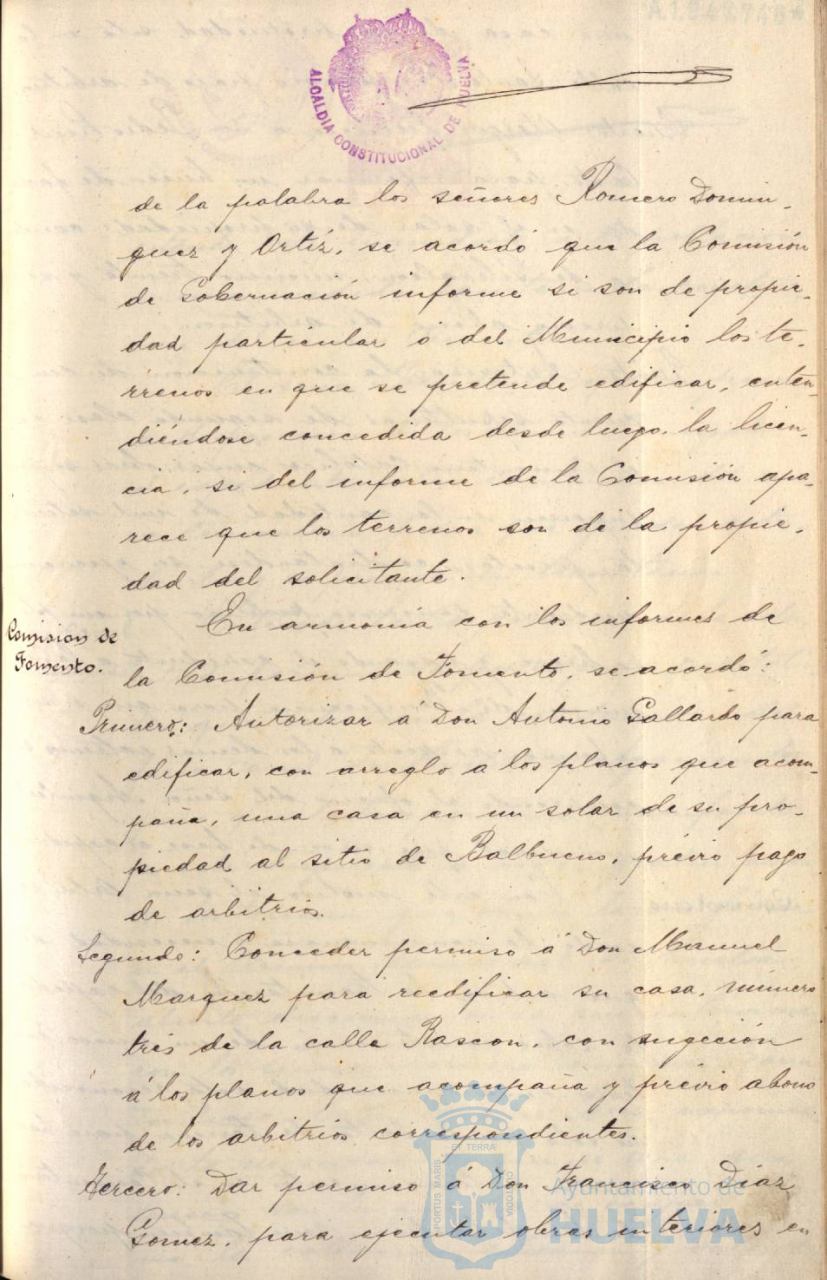 A1342746*
ALCALDIA CONSTITUCIONAL DE HUELVA
de la palabra los señores Romero Domin-
guez y Ortíz, se acordó que la Comisión
de Gobernación informe si son de propie-
dad particular ó del Municipio los te-
rrenos en que se pretende edificar, enten-
diéndose concedida desde luego, la licen-
cia, si del informe de la Comisión apa-
rece que los terrenos son de la propie-
dad del solicitante.
Comision de
Fomento.
En armonía con los informes de
la Comisión de Fomento, se acordó:
Primero: Autorizar á Don Antonio Gallardo para
edificar, con arreglo á los planos que acom-
paña, una casa en un solar de su pro-
piedad al sitio de Balbueno, prévio pago
de arbitrios.
Segundo: Conceder permiso á Don Manuel
Marquez para reedificar su casa, número
tres de la calle Rascon, con sugeción
á los planos que acompaña y prévio abono
de los arbitrios correspondientes.
Tercero: Dar permiso á Don Francisco Díaz
Gomez, para ejecutar obras interiores en
PORTUS MARIS ET TERRAE CUSTODIA
Ayuntamiento de
HUELVA